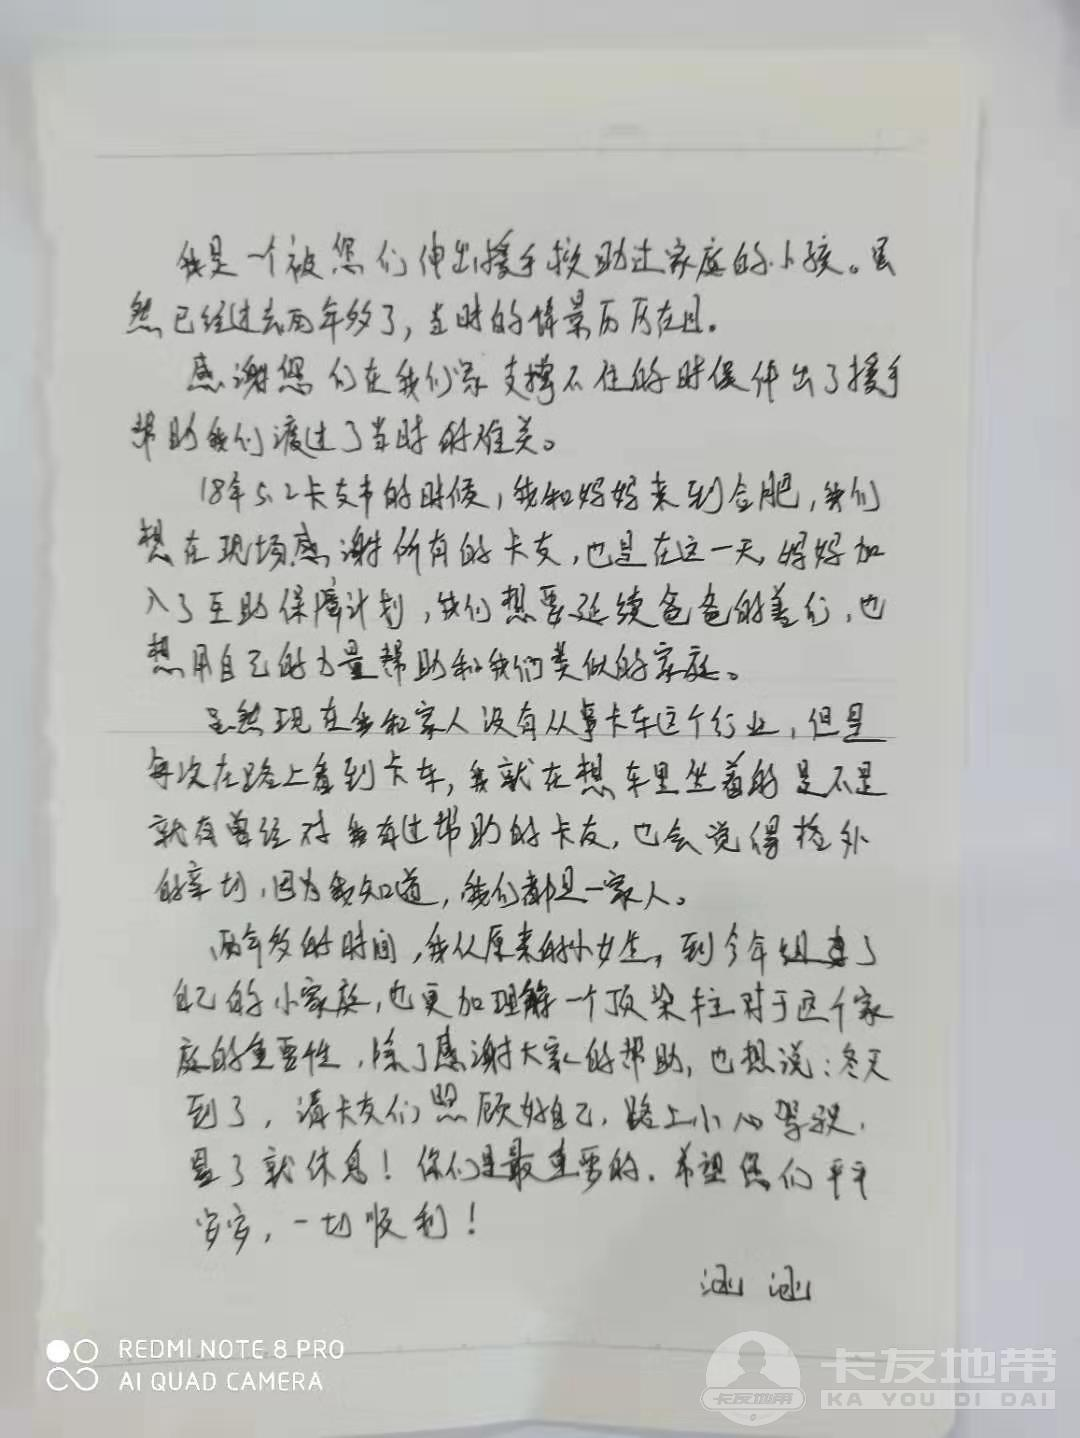 我是一个被您们伸出援手救助过家庭的小孩。虽
然已经过去两年多了，当时的情景历历在目。
感谢您们在我们家支撑不住的时候伸出了援手
帮助我们渡过了当时的难关。
18年5.2卡友节的时候，我和妈妈来到合肥，我们
想在现场感谢所有的卡友，也是在这一天，妈妈加
入了互助保障计划，我们想要延续爸爸的善们，也
想用自己的力量帮助和我们类似的家庭。
虽然现在我和家人没有从事卡车这个行业，但是
每次在路上看到卡车，我就在想车里坐着的是不是
就有曾经对我有过帮助的卡友，也会觉得格外
的亲切，因为我知道，我们都是一家人。
两年多的时间，我从原来的小女生，到今年组建了
自己的小家庭，也更加理解一个顶梁柱对于这个家
庭的重要性，除了感谢大家的帮助，也想说：冬天
到了，请卡友们照顾好自己，路上小心驾驶，
累了就休息！你们是最重要的，希望您们平平
安安，一切顺利！
涵涵
REDMI NOTE 8 PRO
AI QUAD CAMERA
卡友地带
卡友地带
KA YOU DI DAI